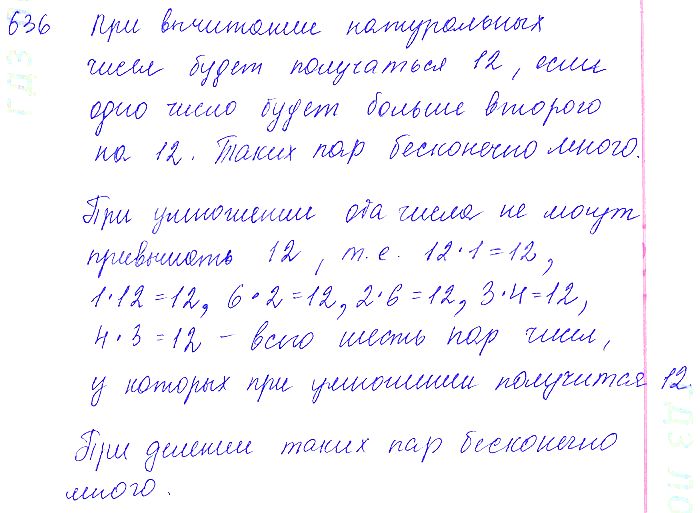 636 При вычитание натуральных
чисел будет получаться 12, если
одно число будет больше второго
на 12. Таких пар бесконечно много.
При умножении оба числа не могут
превышать 12, т.е. 12·1=12,
1·12=12, 6·2=12, 2·6=12, 3·4=12,
4·3=12 – всего шесть пар чисел,
у которых при умножении получится 12.
При делении таких пар бесконечно
много.
ГДЗ
ГДЗ ПО